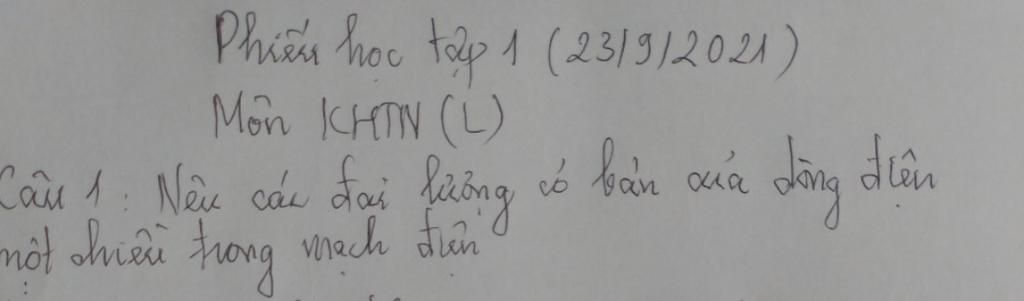 Phiếu học tập 1 (23/9/2021)
Môn KHTN (L)
Câu 1: Nêu các đại lượng cơ bản của dòng điện
một chiều trong mạch điện